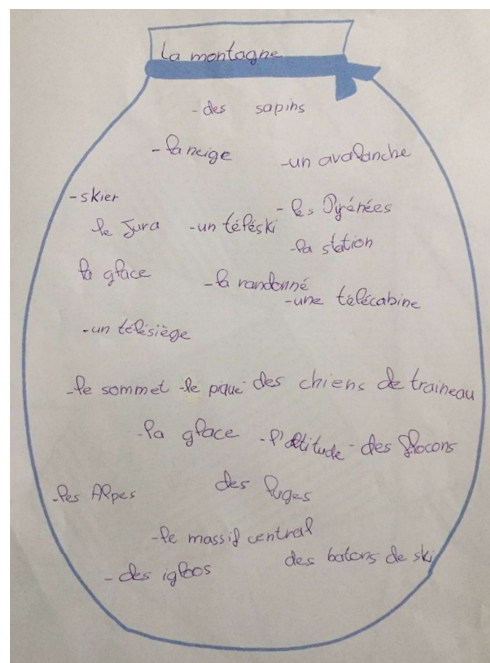 La montagne
- des sapins
- la neige
- un avalanche
- skier
- les Pyrénées
le Jura
- un téléski
- la station
la glace
- la randonné
- une télécabine
- un télésiège
- le sommet
- le pique
des chiens de traineau
- la glace
- l'altitude
- des flocons
- les Alpes
des luges
- le massif central
des batons de ski
- des igloos